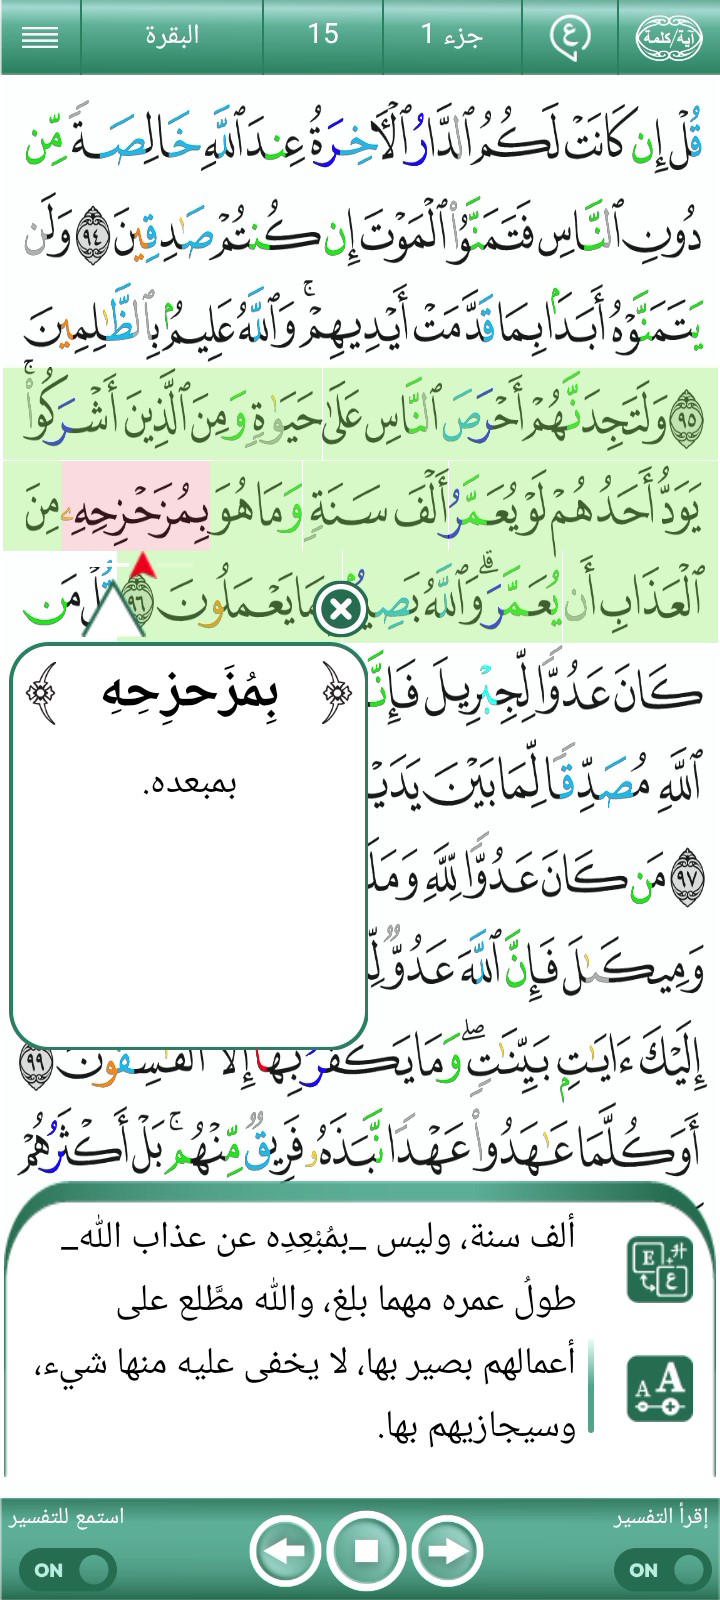 آية/كلمة
ع
جزء 1
15
البقرة
قُلْ إِن كَانَتْ لَكُمُ ٱلدَّارُ ٱلْأَخِرَةُ عِندَ ٱللَّهِ خَالِصَةً مِّن
دُونِ ٱلنَّاسِ فَتَمَنَّوُا۟ ٱلْمَوْتَ إِن كُنتُمْ صَٰدِقِينَ ٩٤ وَلَن
يَتَمَنَّوْهُ أَبَدًۢا بِمَا قَدَّمَتْ أَيْدِيهِمْ ۚ وَٱللَّهُ عَلِيمٌۢ بِٱلظَّٰلِمِينَ
٩٥ وَلَتَجِدَنَّهُمْ أَحْرَصَ ٱلنَّاسِ عَلَىٰ حَيَوٰةٍ وَمِنَ ٱلَّذِينَ أَشْرَكُوا۟ ۚ
يَوَدُّ أَحَدُهُمْ لَوْ يُعَمَّرُ أَلْفَ سَنَةٍ وَمَا هُوَ بِمُزَحْزِحِهِۦ مِنَ
ٱلْعَذَابِ أَن يُعَمَّرَ ۗ وَٱللَّهُ بَصِيرٌۢ بِمَا يَعْمَلُونَ ٩٦ قُلْ مَن
كَانَ عَدُوًّا لِّجِبْرِيلَ فَإِنَّ
ٱللَّهِ مُصَدِّقًا لِّمَا بَيْنَ يَدَيْ
٩٧ مَن كَانَ عَدُوًّا لِّلَّهِ وَمَلَ
وَمِيكَىٰلَ فَإِنَّ ٱللَّهَ عَدُوٌّ لِّ
إِلَيْكَ ءَايَٰتٍۭ بَيِّنَٰتٍ ۖ وَمَا يَكْفُرُ بِهَا إِلَّا ٱلْفَٰسِقُونَ ٩٩
أَوَكُلَّمَا عَٰهَدُوا۟ عَهْدًا نَّبَذَهُۥ فَرِيقٌ مِّنْهُم ۚ بَلْ أَكْثَرُهُمْ
﴿ بِمُزَحزِحِهِ ﴾
بمبعده.
ألف سنة، وليس _بمُبْعِدِه عن عذاب الله_
طولُ عمره مهما بلغ، والله مطَّلع على
أعمالهم بصير بها، لا يخفى عليه منها شيء،
وسيجازيهم بها.
E
ع
A A
إقرأ التفسير
استمع للتفسير
ON
ON